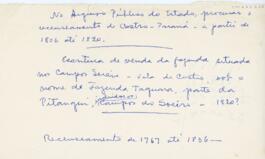 No Arquivo Público do Estado, procurar o
recenseamento de Castro - Paraná - a partir de
1806 até 1820.
Escritura de venda da fazenda situada
nos Campos Gerais - Vila de Castro, sob o
nome de Fazenda Taquara, parte da
Pitangui, Campos do Socêro - 1820?
Recenseamento de 1767 até 1836 -